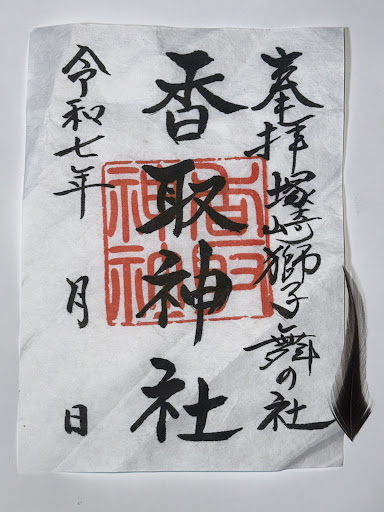 奉拝塚崎獅子舞の社
香取神社
香取神社
令和七年 月 日